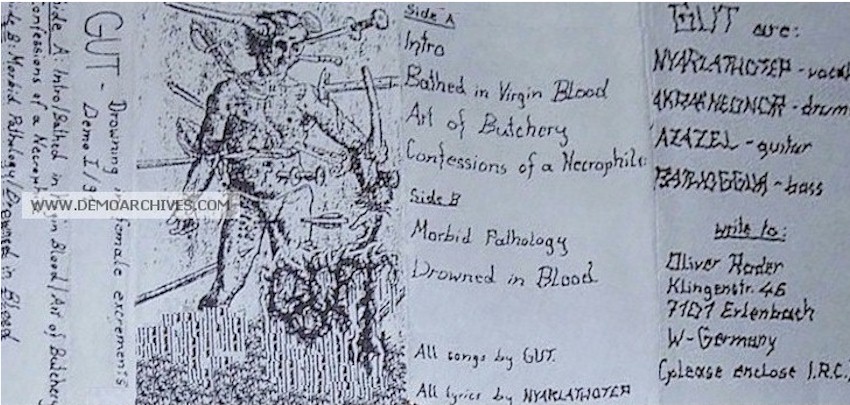 Side B: Morbid Pathology/Drowned in Blood
Confessions of a Necrophile
Side A: Intro/Bathed in Virgin Blood/Art of Butchery
GUT - Drowning in female excrements
Demo I/9
WWW.DEMOARCHIVES.COM
Side A
Intro
Bathed in Virgin Blood
Art of Butchery
Confessions of a Necrophile
Side B
Morbid Pathology
Drowned in Blood
All songs by GUT.
All lyrics by NYARLATHOTEP
GUT are:
NYARLATHOTEP - vocal
- drum
AZAZEL - guitar
- bass
write to:
Oliver Roder
Klingenstr. 46
7101 Erlenbach
W-Germany
(please enclose I.R.C.)